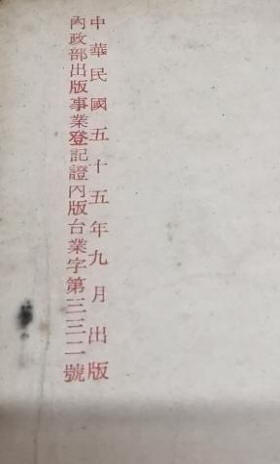 中華民國五十五年九月出版
內政部出版事業登記證內版台業字第三三二號